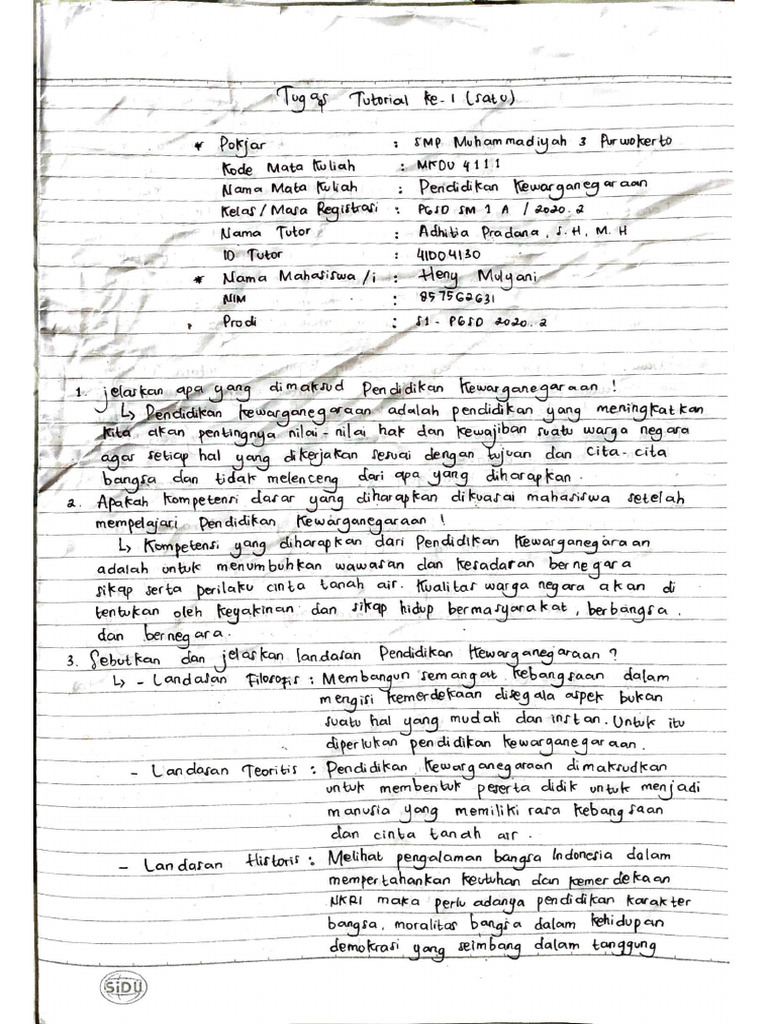 Tugas Tutorial Ke-1 (satu)
* Pokjar : SMP Muhammadiyah 3 Purwokerto
Kode Mata Kuliah : MKDU 4111
Nama Mata Kuliah : Pendidikan Kewarganegaraan
Kelas / Masa Registrasi : PGSD SM 1 A / 2020.2
Nama Tutor : Adhitia Pradana, S.H, M.H
ID Tutor : 41004130
* Nama Mahasiswa/i : Heny Mulyani
NIM : 857562631
Prodi : S1 - PGSD 2020.2
1. Jelaskan apa yang dimaksud Pendidikan Kewarganegaraan !
↳ Pendidikan kewarganegaraan adalah pendidikan yang meningkatkan
kita akan pentingnya nilai-nilai hak dan kewajiban suatu warga negara
agar setiap hal yang dikerjakan sesuai dengan tujuan dan cita-cita
bangsa dan tidak melenceng dari apa yang diharapkan.
2. Apakah kompetensi dasar yang diharapkan dikuasai mahasiswa setelah
mempelajari Pendidikan Kewarganegaraan !
↳ Kompetensi yang diharapkan dari Pendidikan Kewarganegaraan
adalah untuk menumbuhkan wawasan dan kesadaran bernegara
sikap serta perilaku cinta tanah air. Kualitas warga negara akan di
tentukan oleh keyakinan dan sikap hidup bermasyarakat, berbangsa.
dan bernegara.
3. Sebutkan dan jelaskan landasan Pendidikan Kewarganegaraan ?
↳ - Landasan Filosofis : Membangun semangat kebangsaan dalam
mengisi kemerdekaan disegala aspek bukan
suatu hal yang mudah dan instan. Untuk itu
diperlukan pendidikan kewarganegaraan.
- Landasan Teoritis : Pendidikan Kewarganegaraan dimaksudkan
untuk membentuk peserta didik untuk menjadi
manusia yang memiliki rasa kebangsaan
dan cinta tanah air.
- Landasan Historis : Melihat pengalaman bangsa Indonesia dalam
mempertahankan keutuhan dan kemerdekaan
NKRI maka perlu adanya pendidikan karakter
bangsa, moralitas bangsa dalam kehidupan
demokrasi yang seimbang dalam tanggung
SiDU